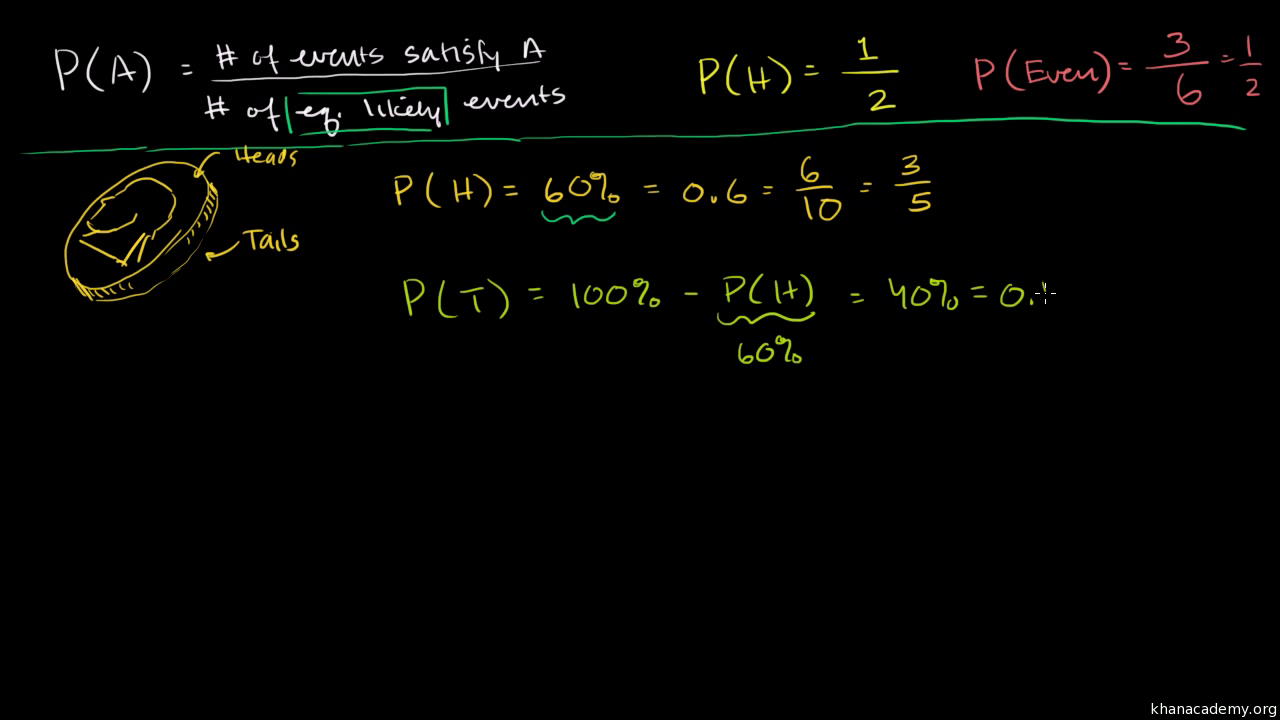 P(A) = # of events satisfy A / # of eq. likely events
P(H) = 1/2
P(Even) = 3/6 = 1/2
Heads
P(H) = 60% = 0.6 = 6/10 = 3/5
Tails
P(T) = 100% - P(H) = 40% = 0.
60%
khanacademy.org